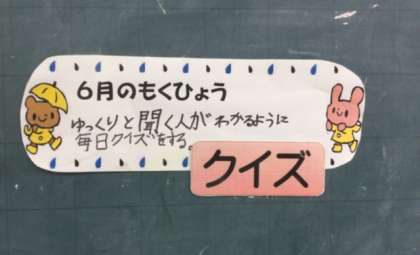 6月のもくひょう
ゆっくりと聞く人がわかるように
毎日クイズをする。
クイズ